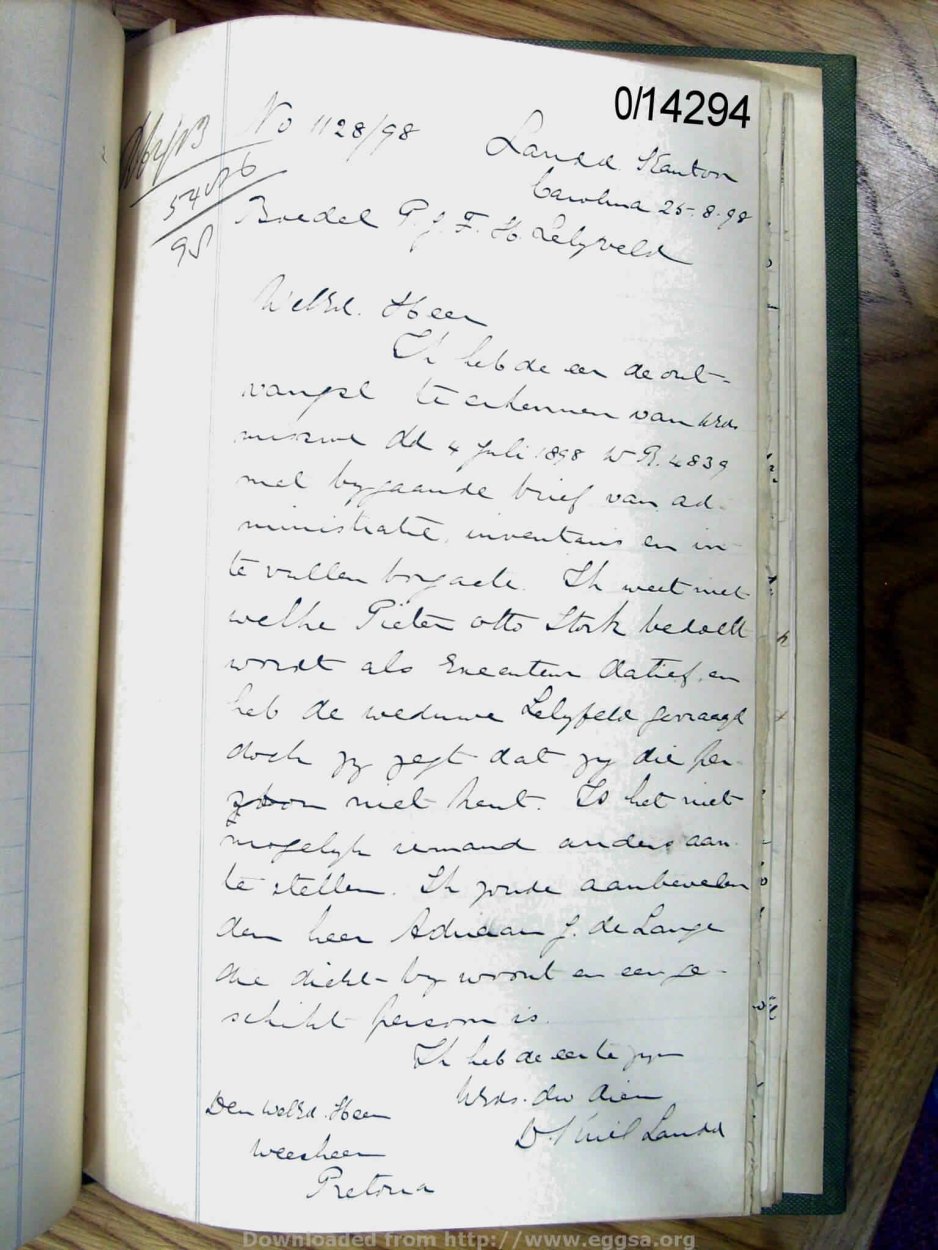 0/14294
No 1128/98
Landd. Kantoor
Carolina 25-8-98
Boedel P. J. F. H. Lelyveld
WelEd. Heer
Ik heb de eer de ont-
vangst te erkennen van UEds.
missive dd 4 Juli 1898 W R. 4839
met bygaande brief van ad-
ministratie, inventaris en in
te vullen borgacte. Ik weet niet
welke Pieter Otto Stork bedoelt
wordt als Executeur Datief, en
heb de weduwe Lelyfeld gevraagd
doch zy zegt dat zy die per-
zoon niet kent. Is het niet
mogelyk iemand anders aan
te stellen. Ik zoude aanbevelen
den heer Adriaan J. de Lange
die dicht-by woont en een ge-
schikt persoon is.
Ik heb de eer te zyn
UEds. dw dien
Landd
Den WelEd. Heer
Weesheer
Pretoria
Downloaded from http://www.eggsa.org